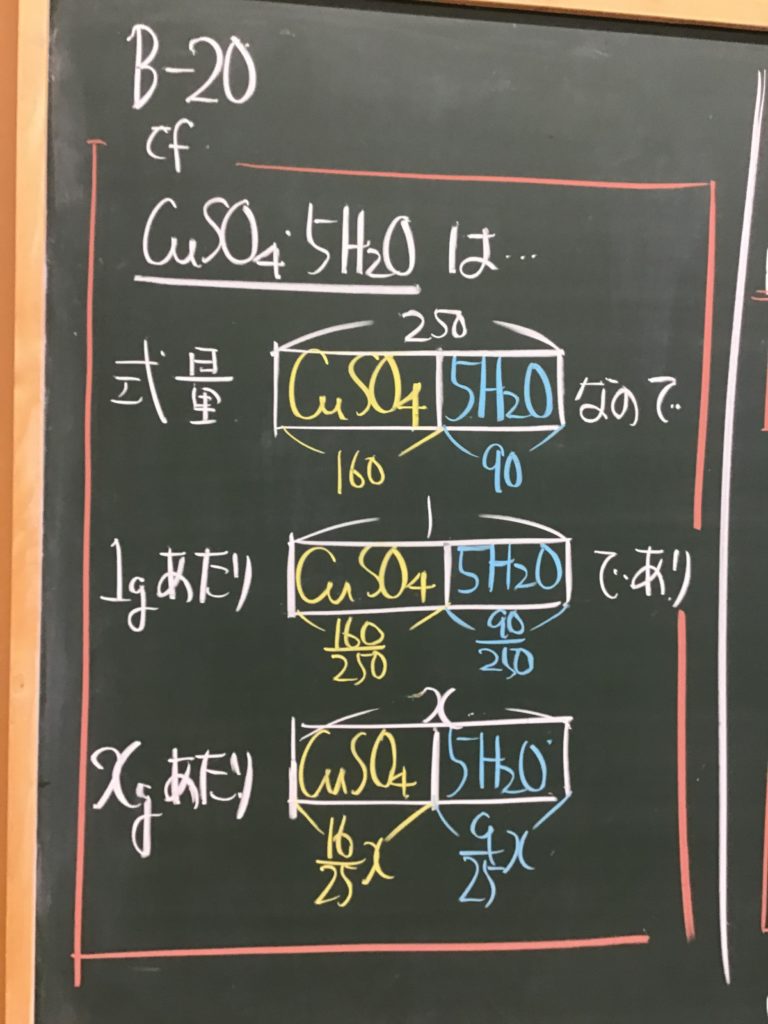 B-20
cf
CuSO4・5H2Oは…
250
式量 CuSO4 5H2O なので
160 90
1
1gあたり CuSO4 5H2O であり
160/250 90/250
x
xgあたり CuSO4 5H2O
16/25x 9/25x